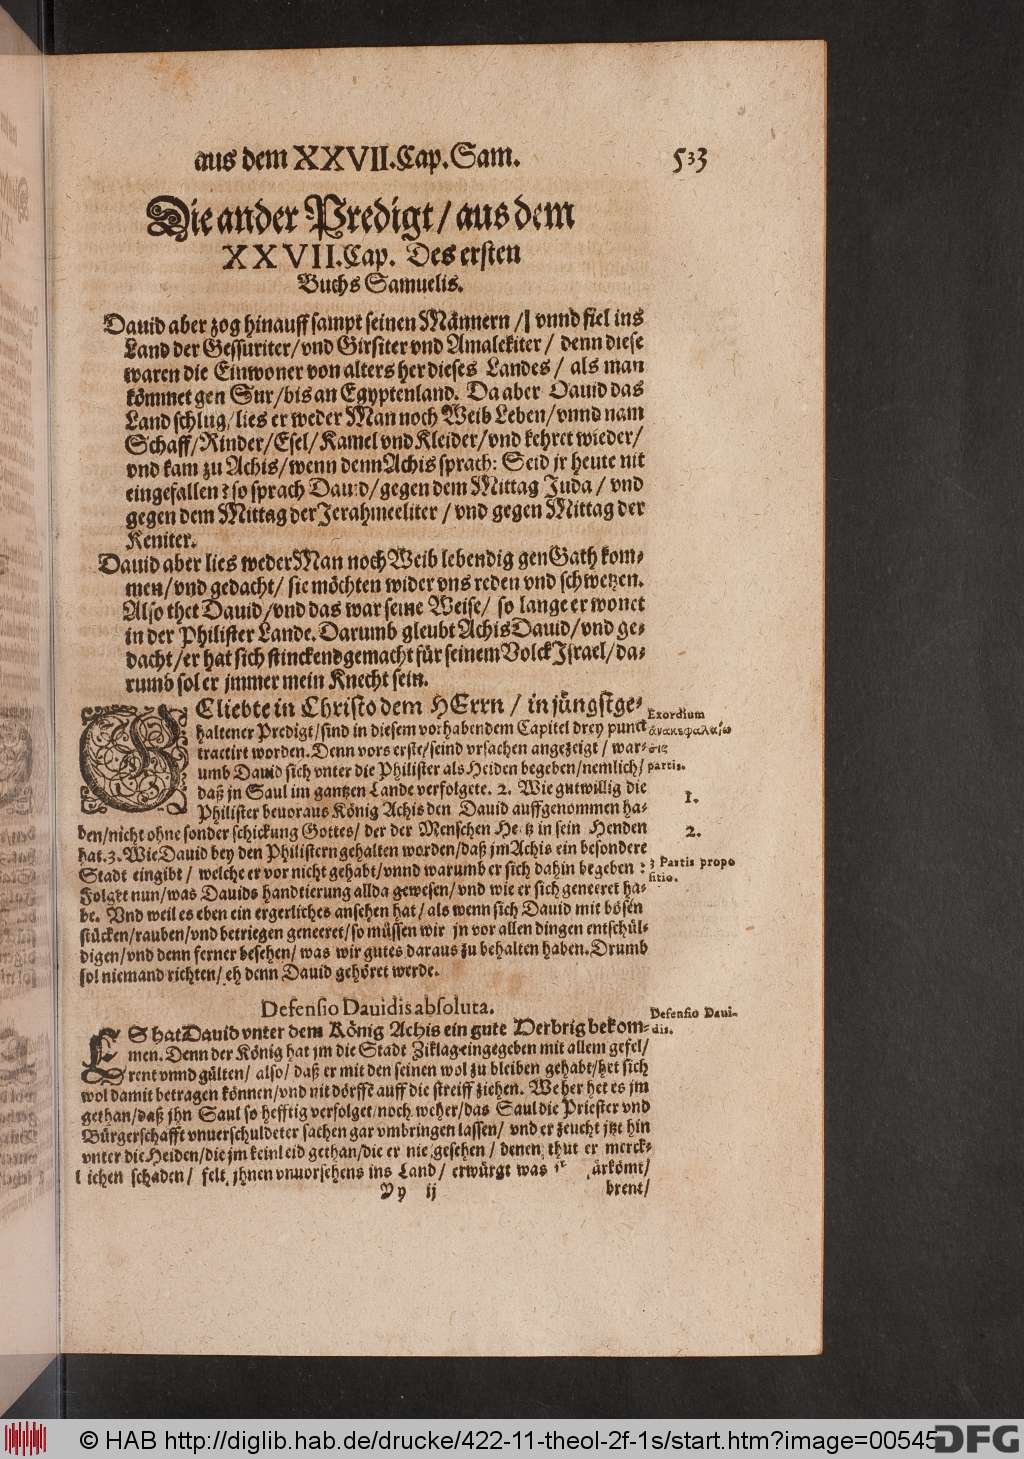 aus dem XXVII. Cap. Sam. 533
Die ander Predigt / aus dem
XXVII. Cap. Des ersten
Buchs Samuelis.
Dauid aber zog hinauff sampt seinen Männern / vnnd fiel ins
Land der Gessuriter / vnd Girsiter vnd Amalekiter / denn diese
waren die Einwoner von alters her dieses Landes / als man
kömmet gen Sur / bis an Egyptenland. Da aber Dauid das
Land schlug / lies er weder Man noch Weib Leben / vnnd nam
Schaff / Rinder / Esel / Kamel vnd Kleider / vnd kehret wieder /
vnd kam zu Achis / wenn denn Achis sprach: Seid jr heute nit
eingefallen? so sprach Dauid / gegen dem Mittag Juda / vnd
gegen dem Mittag der Jerahmeeliter / vnd gegen Mittag der
Keniter.
Dauid aber lies weder Man noch Weib lebendig gen Gath kom-
men / vnd gedacht / sie möchten wider vns reden vnd schwetzen.
Also thet Dauid / vnd das war seine Weise / so lange er wonet
in der Philister Lande. Darumb gleubt Achis Dauid / vnd ge-
dacht / er hat sich stinckend gemacht für seinem Volck Israel / da-
rumb sol er jmmer mein Knecht sein.
GEliebte in Christo dem HErrn / in jüngstge-
haltener Predigt / sind in diesem vorhabendem Capitel drey punct
tractirt worden. Denn vors erste / seind vrsachen angezeigt / war-
umb Dauid sich vnter die Philister als Heiden begeben / nemlich /
daß jn Saul im gantzen Lande verfolgete. 2. Wie gutwillig die
Philister beuoraus König Achis den Dauid auffgenommen ha-
ben / nicht ohne sonder schickung Gottes / der der Menschen Hertz in sein Henden
hat. 3. Wie Dauid bey den Philistern gehalten worden / daß jm Achis ein besondere
Stadt eingibt / welche er vor nicht gehabt / vnnd warumb er sich dahin begeben:
Folget nun / was Dauids handtierung allda gewesen / vnd wie er sich generet ha-
be. Vnd weil es eben ein ergerliches ansehen hat / als wenn sich Dauid mit bösen
stücken / rauben / vnd betriegen generet / so müssen wir jn vor allen dingen entschül-
digen / vnd denn ferner besehen / was wir gutes daraus zu behalten haben. Drumb
sol niemand richten / eh denn Dauid gehöret werde.
Exordium
partis.
1.
2.
3 Partis propo
sitio.
Defensio Dauidis absoluta.
ES hat Dauid vnter dem König Achis ein gute Herbrig bekom-
men. Denn der König hat jm die Stadt Ziklag eingegeben mit allem gefel /
rent vnnd gülten / also / daß er mit den seinen wol zu bleiben gehabt / het sich
wol damit betragen können / vnd nit dörffe auff die streiff ziehen. Weher het es jm
gethan / daß jhn Saul so hefftig verfolget / noch weher / das Saul die Priester vnd
Bürgerschafft vnuerschuldeter sachen gar vmbringen lassen / vnd er zeucht jtzt hin
vnter die Heiden / die jm kein leid gethan / die er nie gesehen / denen thut er merck-
lichen schaden / felt jhnen vnuorsehens ins Land / erwürgt was
Defensio Daui-
dis.
Yy ij brent /
© HAB http://diglib.hab.de/drucke/422-11-theol-2f-1s/start.htm?image=00545
DFG